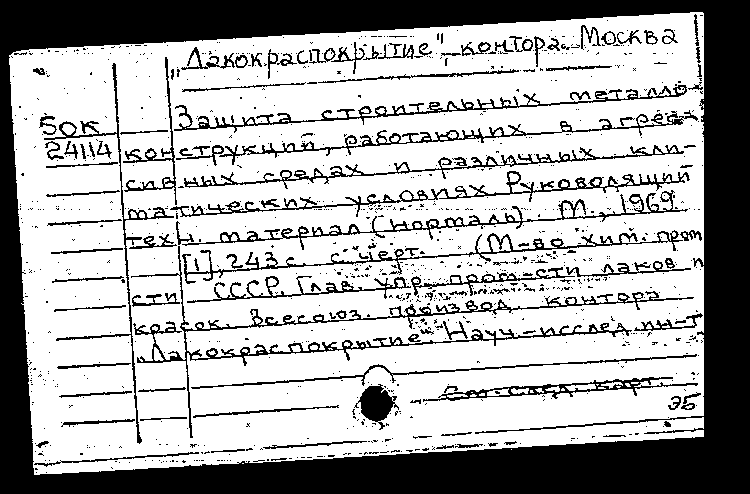 „Лакокраспокрытие", контора. Москва
50к
24114
Защита строительных металло-
конструкций, работающих в агрес-
сивных средах и различных кли-
матических условиях Руководящий
техн. материал (нормаль). М., 1969.
[1], 243 с. с черт. (М-во хим. пром
сти СССР. Глав. упр. пром-сти лаков и
красок. Всесоюз. производ. контора
„Лакокраспокрытие". Науч.-исслед. ин-т
См. след. карт.
35